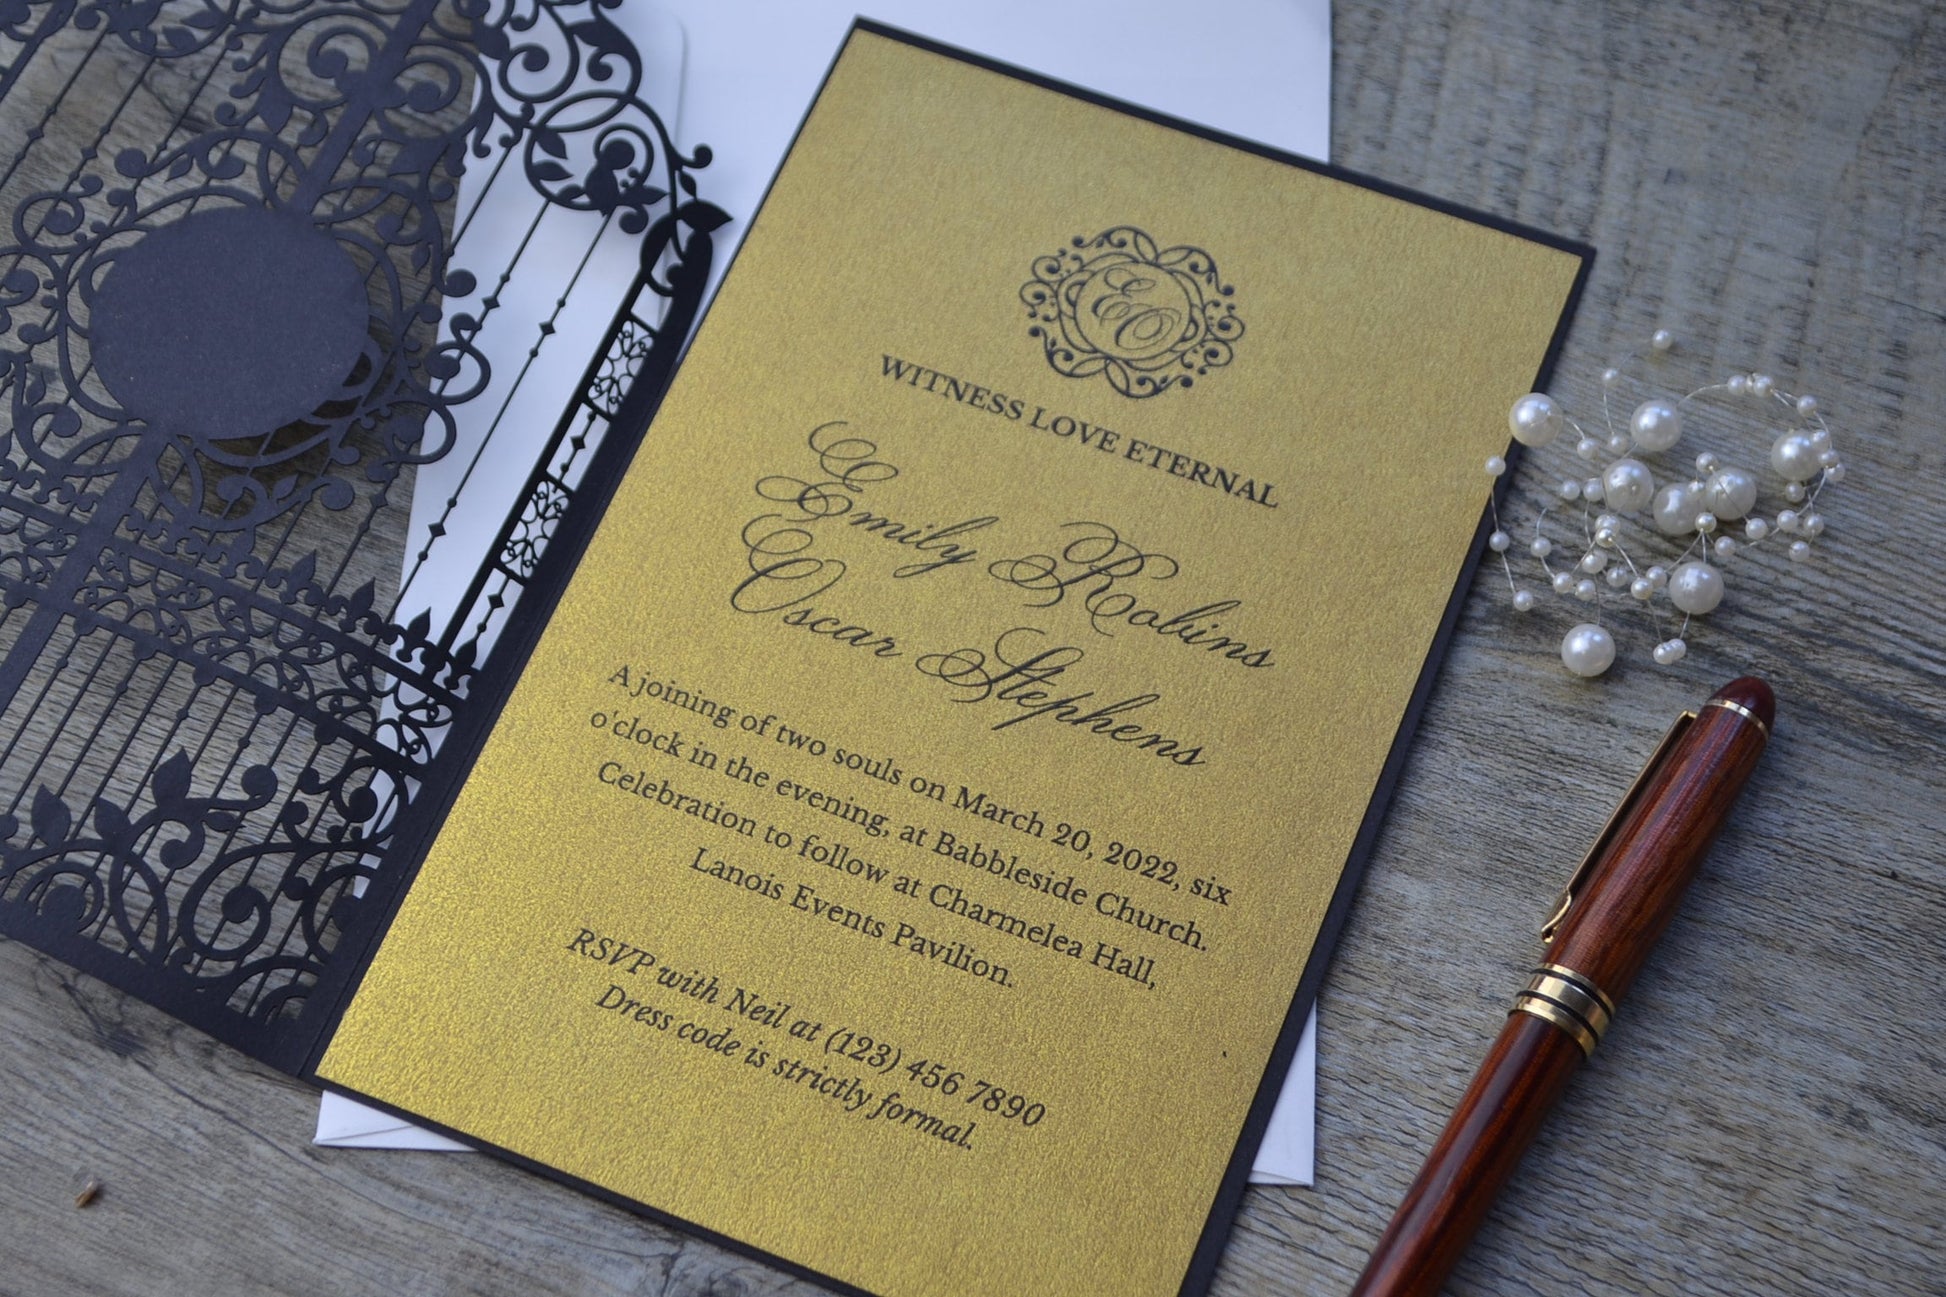 EO
WITNESS LOVE ETERNAL
Emily Robins
Oscar Stephens
A joining of two souls on March 20, 2022, six
o'clock in the evening, at Babbleside Church.
Celebration to follow at Charmelea Hall,
Lanois Events Pavilion.
RSVP with Neil at (123) 456 7890
Dress code is strictly formal.